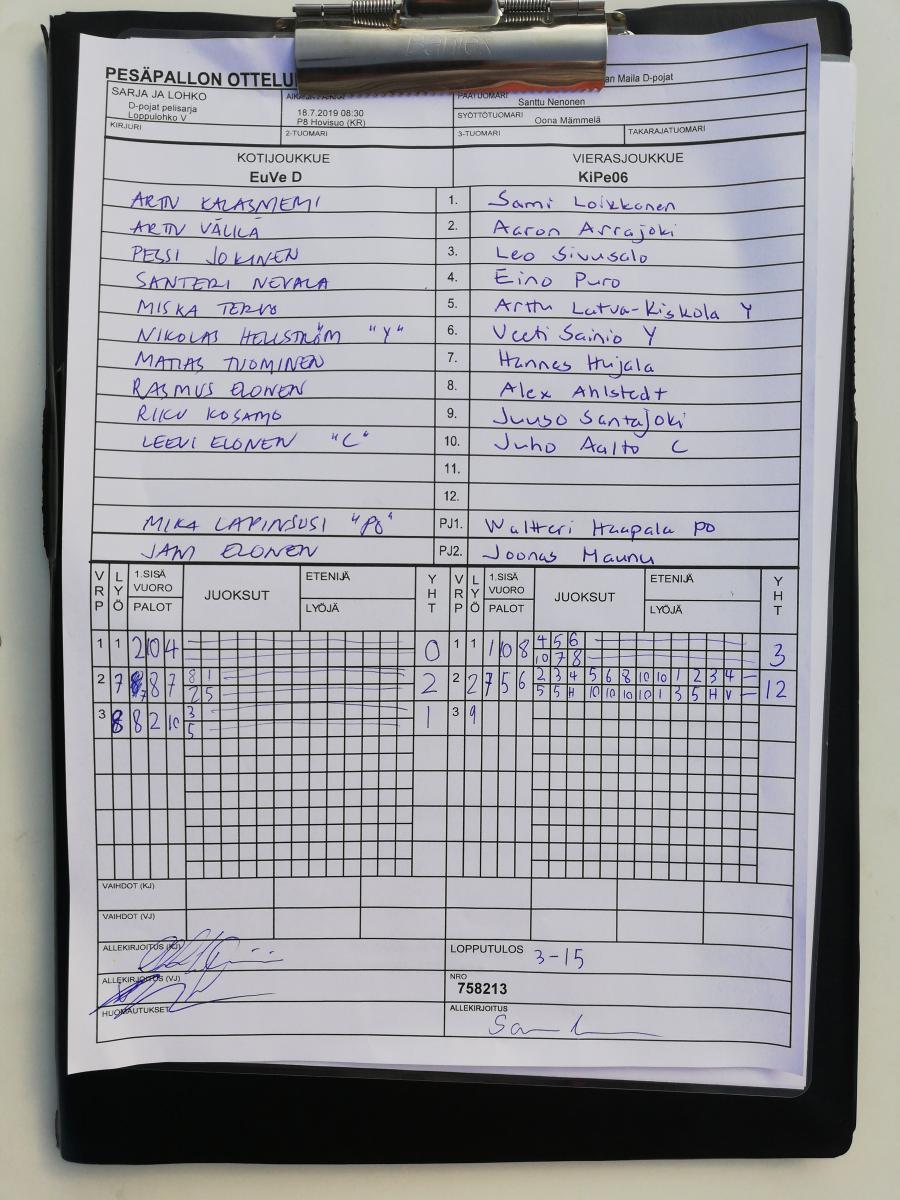 PESÄPALLON OTTELU
an Maila D-pojat
SARJA JA LOHKO
D-pojat pelisarja
Loppulohko V
18.7.2019 08:30
P8 Hovisuo (KR)
PÄÄTUOMARI
Santtu Nenonen
SYÖTTÖTUOMARI
Oona Mämmelä
KIRJURI 2-TUOMARI 3-TUOMARI TAKARAJATUOMARI
KOTIJOUKKUE VIERASJOUKKUE
EuVe D KiPe06
ARTTU KALASNIEMI 1. Sami Loikkanen
ARTTU VÄLILÄ 2. Aaron Arrajoki
PESSI JOKINEN 3. Leo Sivusalo
SANTERI NEVALA 4. Eino Puro
MISKA TERVO 5. Arttu Latva-Kiskola Y
NIKOLAS HELLSTRÖM "Y" 6. Veeti Sainio Y
MATIAS TUOMINEN 7. Hannes Hujala
RASMUS ELONEN 8. Alex Ahlstedt
RIKU KOSAMO 9. Juuso Santajoki
LEEVI ELONEN "C" 10. Juho Aalto C
11.
12.
MIKA LAPINSUSI "PO" PJ1. Waltteri Haapala PO
JANI ELONEN PJ2. Joonas Maunu
VRP LYÖ 1.SISÄ VUORO PALOT JUOKSUT ETENIJÄ LYÖJÄ YHT VRP LYÖ 1.SISÄ VUORO PALOT JUOKSUT ETENIJÄ LYÖJÄ YHT
1 1 2 0 4 0 1 1 1 0 8 4 5 6 3
10 7 8
2 7 8 7 8 1 2 2 2 7 5 6 2 3 4 5 6 8 10 10 1 2 3 4 12
2 5 5 5 H 10 10 10 10 1 3 5 H V
3 8 8 2 10 3 1 3 9
5
VAIHDOT (KJ)
VAIHDOT (VJ)
ALLEKIRJOITUS (KJ) LOPPUTULOS 3-15
ALLEKIRJOITUS (VJ) NRO
758213
HUOMAUTUKSET ALLEKIRJOITUS